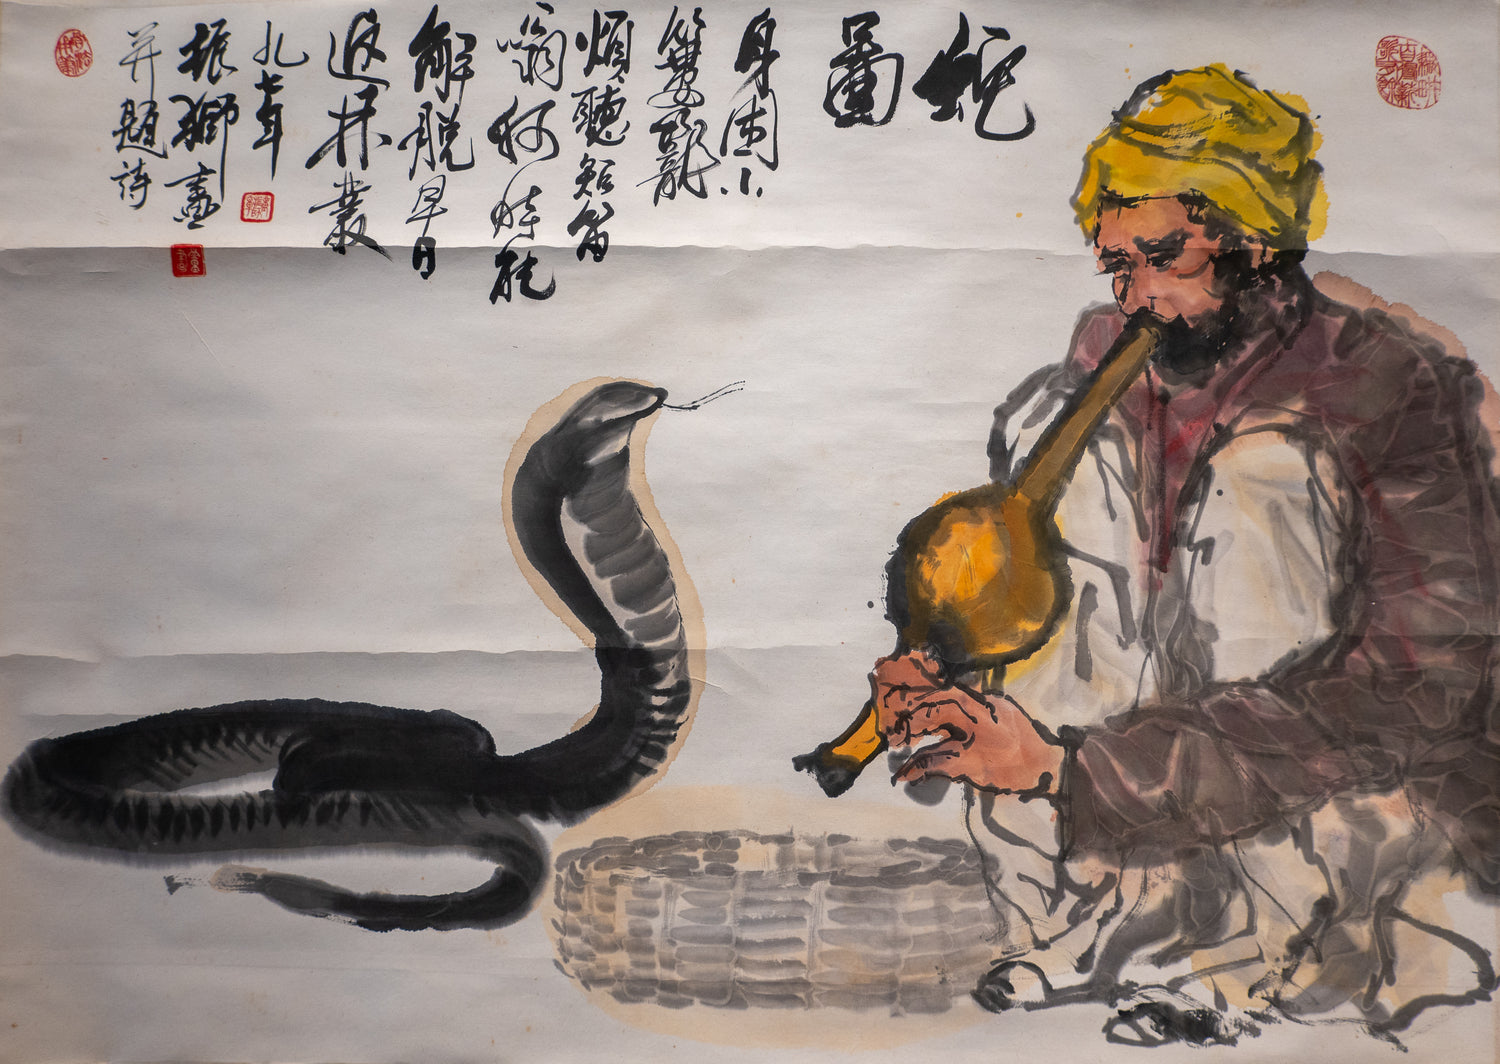 蛇
圖
身困小
簍籠
煩聽短笛
翁何時能
解脱早日
返林叢
九七年
振獅畫
并題詩